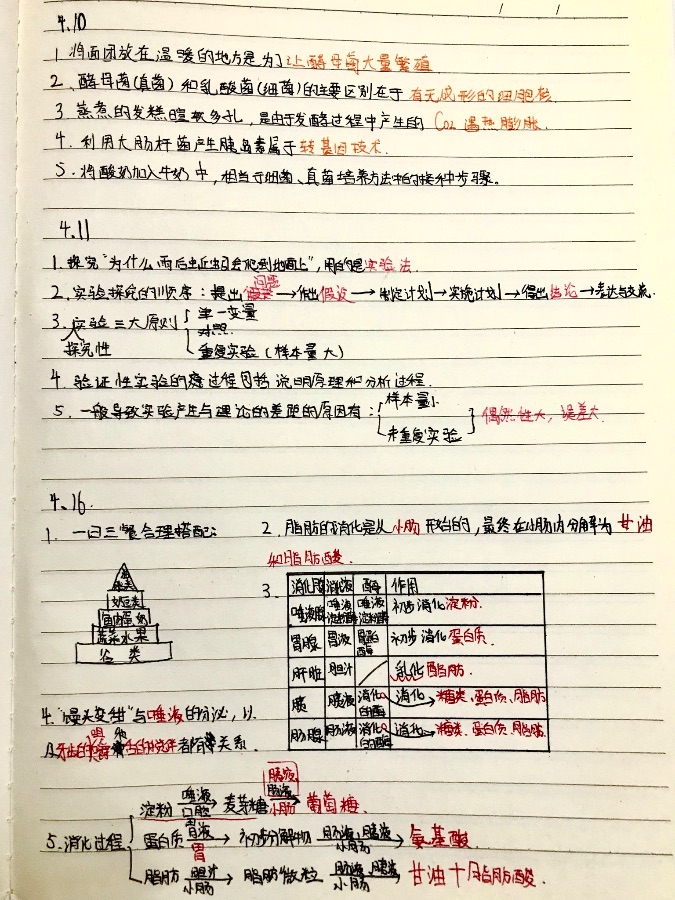 4.10
1. 将面团放在温暖的地方是为了让酵母菌大量繁殖
2. 酵母菌(真菌)和乳酸菌(细菌)的主要区别在于有无成形的细胞核.
3 蒸煮的发糕暄软多孔,是由于发酵过程中产生的CO2遇热膨胀.
4. 利用大肠杆菌产生胰岛素属于转基因技术.
5. 将酸奶加入牛奶中,相当于细菌、真菌培养方法中的接种步骤。
4.11
1. 探究"为什么雨后蚯蚓会爬到地面上",用的是实验法.
问题
2. 实验探究的顺序:提出→作出假设→制定计划→实施计划→得出结论→表达与交流.
3. 实验三大原则
探究性
单一变量
对照
重复实验(样本量大)
4. 验证性实验的过程包括说明原理和分析过程.
5. 一般导致实验产生与理论的差距的原因有:
样本量小
未重复实验
偶然性大,误差大
4.16
1. 一日三餐合理搭配:
奶豆类
鱼肉蛋奶
蔬菜水果
谷类
2. 脂肪的消化是从小肠开始的,最终在小肠内分解为甘油
和脂肪酸.
3.
消化腺 消化液 酶 作用
唾液腺 唾液 唾液淀粉酶 初步消化淀粉.
胃腺 胃液 胃蛋白酶 初步消化蛋白质.
肝脏 胆汁 乳化脂肪.
胰 胰液 消化的酶 消化→糖类、蛋白质、脂肪
肠腺 肠液 消化的酶 消化→糖类、蛋白质、脂肪.
4. "馒头变甜"与唾液的分泌,以
及牙齿的咀嚼和舌的搅拌都有关系.
5. 消化过程
淀粉 唾液 口腔 → 麦芽糖 胰液 肠液 小肠 葡萄糖.
蛋白质 胃液 胃 → 初步分解物 肠液、胰液 小肠 → 氨基酸.
脂肪 胆汁 小肠 → 脂肪微粒 肠液、胰液 小肠 → 甘油+脂肪酸.